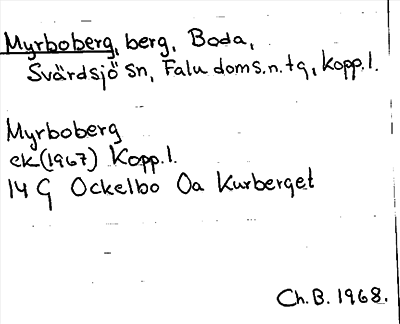 Myrboberg, berg, Boda,
Svärdsjö sn, Falu doms.n.tg, Kopp.l.
Myrboberg
ek (1967) Kopp.l.
14 G Ockelbo 0a Kurberget
Ch.B. 1968.